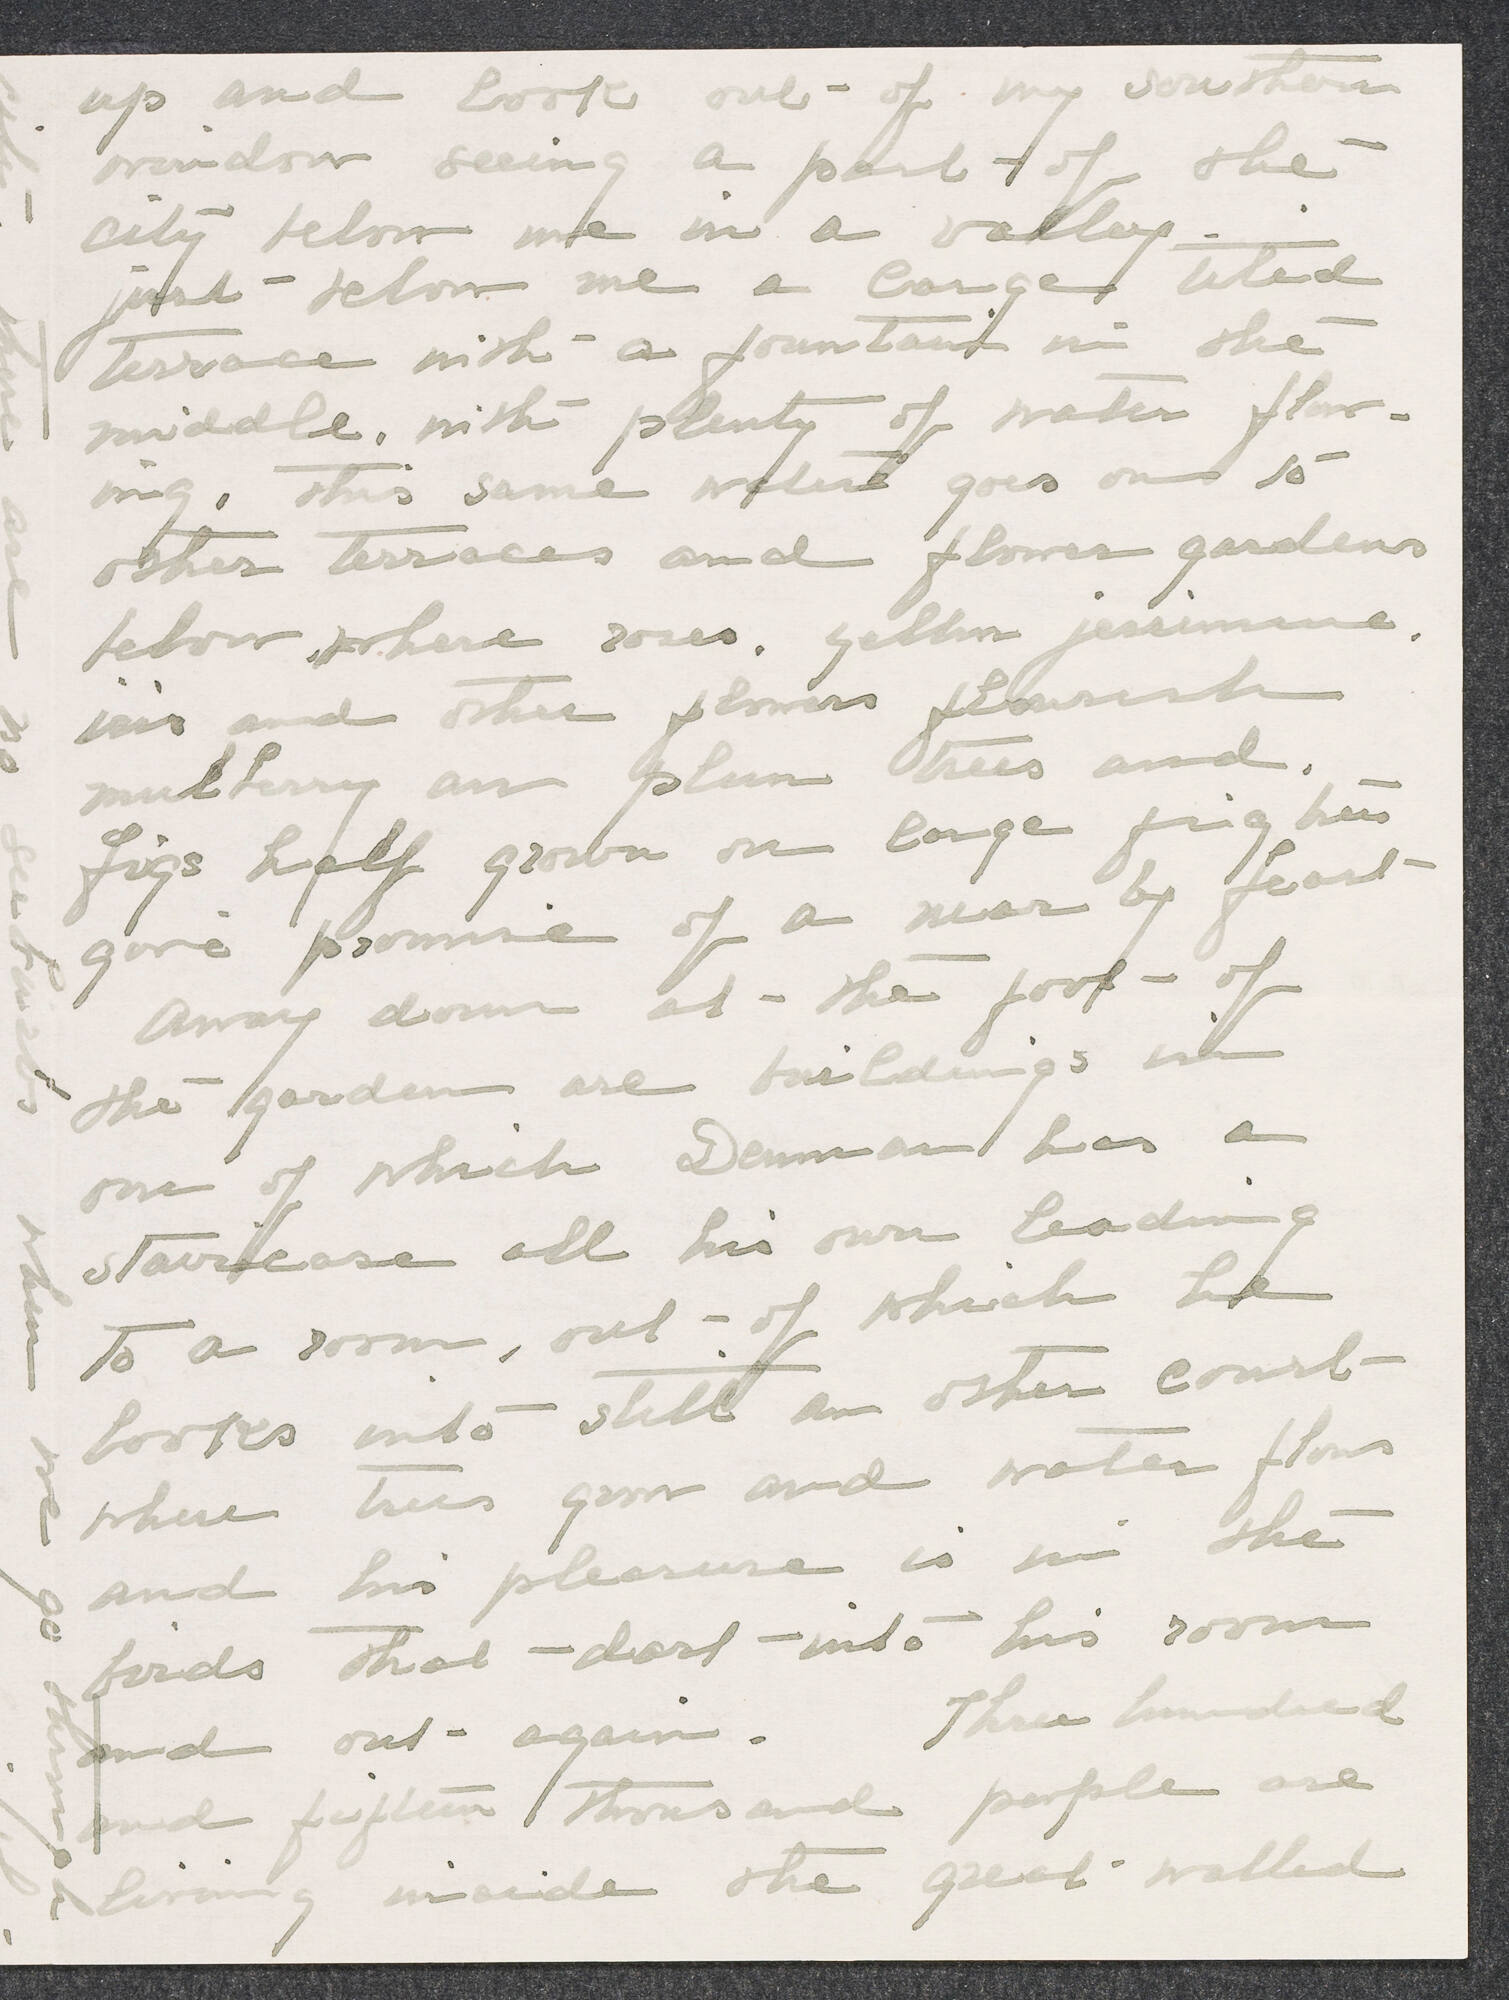 up and look out of my southern
window seeing a part of the
city below me in a valley -
just below me a large, tiled
terrace with a fountain in the
middle, with plenty of water flow-
ing, this same water goes on to
other terraces and flower gardens
below, where roses, yellow jessimine,
iris and other flowers flourish
mulberry an plum trees and,
figs half grown on large fig trees
give promise of a near by feast
Away down at the foot of
the garden are buildings in
one of which Denman has a
staircase all his own leading
to a room, out of which he
looks into still an other court
where trees grow and water flows
and his pleasure is in the
birds that dart into his room
and out again. Three hundred
and fifteen thousand people are
living inside the great walled
there are no
when we go through